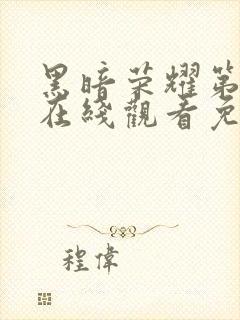 黑暗荣耀第
在线觀看免
程偉